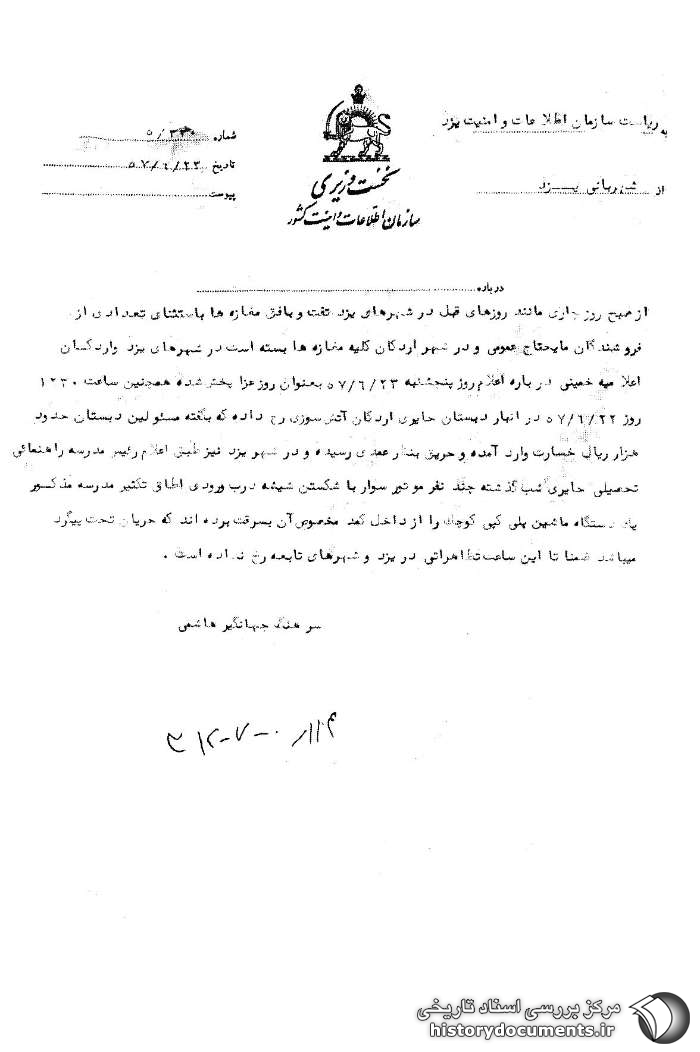 به ریاست سازمان اطلاعات و امنیت یزد
از شهربانی یزد
نخست وزیری
سازمان اطلاعات و امنیت کشور
شماره ۵/۳۳۰
تاریخ ۵۷/۶/۲۳
پیوست
درباره
از صبح روز جاری مانند روزهای قبل در شهرهای یزد تفت و بافق مغازه ها باستثنای تعدادی از
فروشندگان مایحتاج عمومی و در شهر اردکان کلیه مغازه ها بسته است در شهرهای یزد و اردکان
اعلامیه خمینی درباره اعلام روز پنجشنبه ۵۷/۶/۲۳ بعنوان روز عزا پخش شده همچنین ساعت ۱۲۳۰
روز ۵۷/۶/۲۲ در انبار دبستان حایری اردکان آتش سوزی رخ داده که بگفته مسئولین دبستان حدود
هزار ریال خسارت وارد آمده و حریق بنظر عمدی رسیده و در شهر یزد نیز طبق اعلام رئیس مدرسه راهنمائی
تحصیلی حایری شب گذشته چند نفر موتور سوار با شکستن شیشه درب ورودی اطاق تکثیر مدرسه مذکور
یک دستگاه ماشین پلی کپی کوچک را از داخل کمد مخصوص آن بسرقت برده اند که جریان تحت پیگرد
میباشد ضمنا تا این ساعت تظاهراتی در یزد و شهرهای تابعه رخ نداده است .
سرهنگ جهانگیر هاشمی
مرکز بررسی اسناد تاریخی
historydocuments.ir